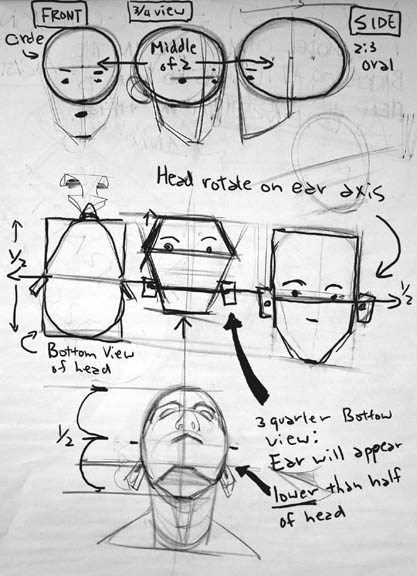 FRONT
3/4 view
SIDE
Circle
Middle
of 2
2:3
oval
Head rotate on ear axis
1/2
1/2
Bottom View
of head
1/2
3 quarter Bottom
view:
Ear will appear
lower than half
of head